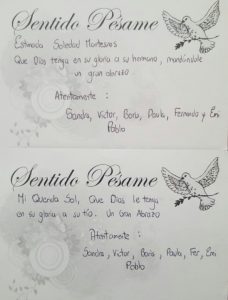 Sentido Pésame
Estimada Soledad Montesinos
Que Dios tenga en su gloria a su hermano, mandándole
un gran abrazo
Atentamente :
Sandra, Victor, Boris, Paula, Fernando y Emi
Pablo
Sentido Pésame
Mi Querida Sol, Que Dios le tenga
en su gloria a su tío. Un Gran Abrazo
Atentamente :
Sandra, Victor, Boris, Paula, Fer, Emi
Pablo